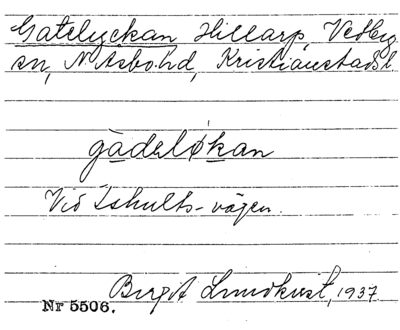 Gatelyckan Hillarp, Vedby
sn, N. Åsbo hd, Kristianstads l.
gàdeløkan
Vid Ishults-vägen.
Birgit Lundkvist, 1937
Nr 5506.